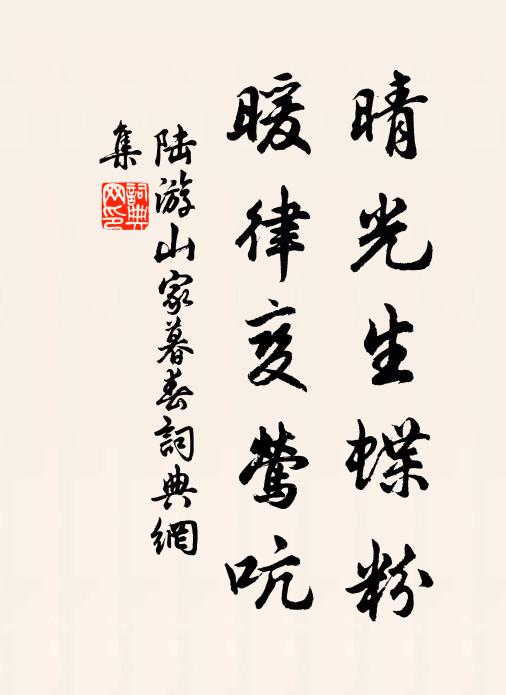 晴光生蝶粉
暖律变莺吭
陆游山家暮春詞典網
集
詞典网印